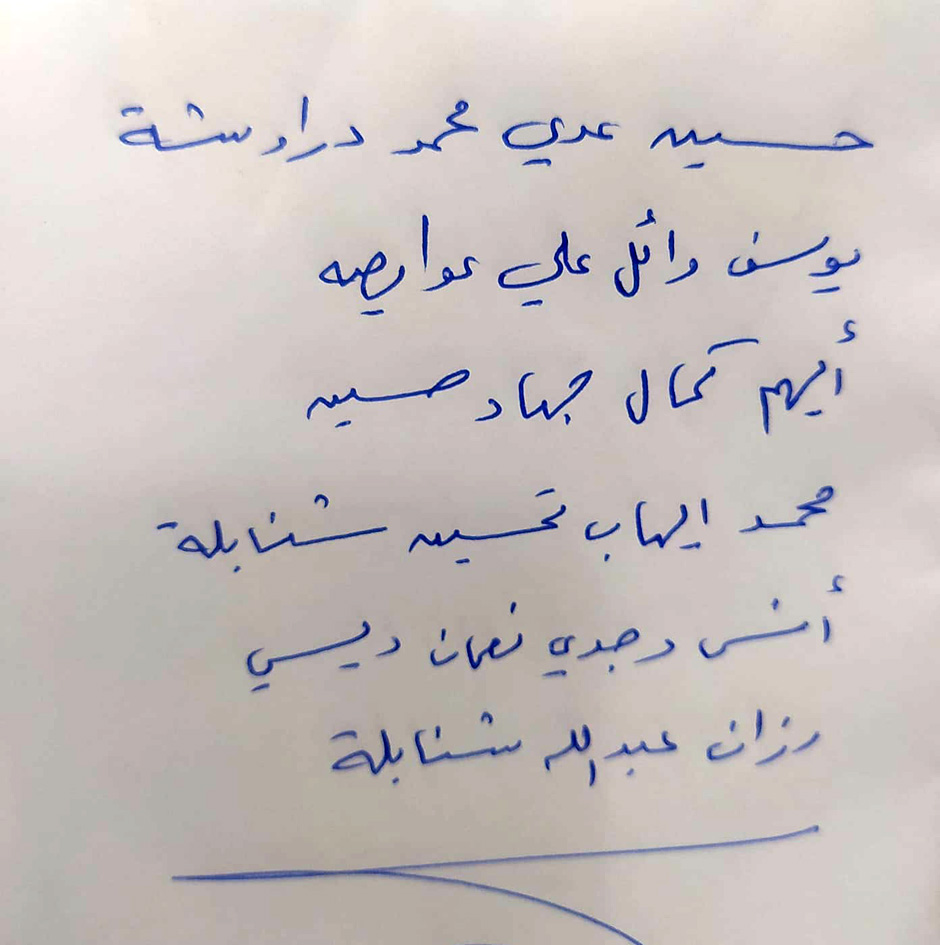 حسين عدي محمد دراوشة
يوسف وائل علي عوايصه
أيهم كمال جهاد حسين
محمد ايهاب تحسين شنابلة
أنس وجدي نعمان ديسي
رزان عبدالله شنابلة